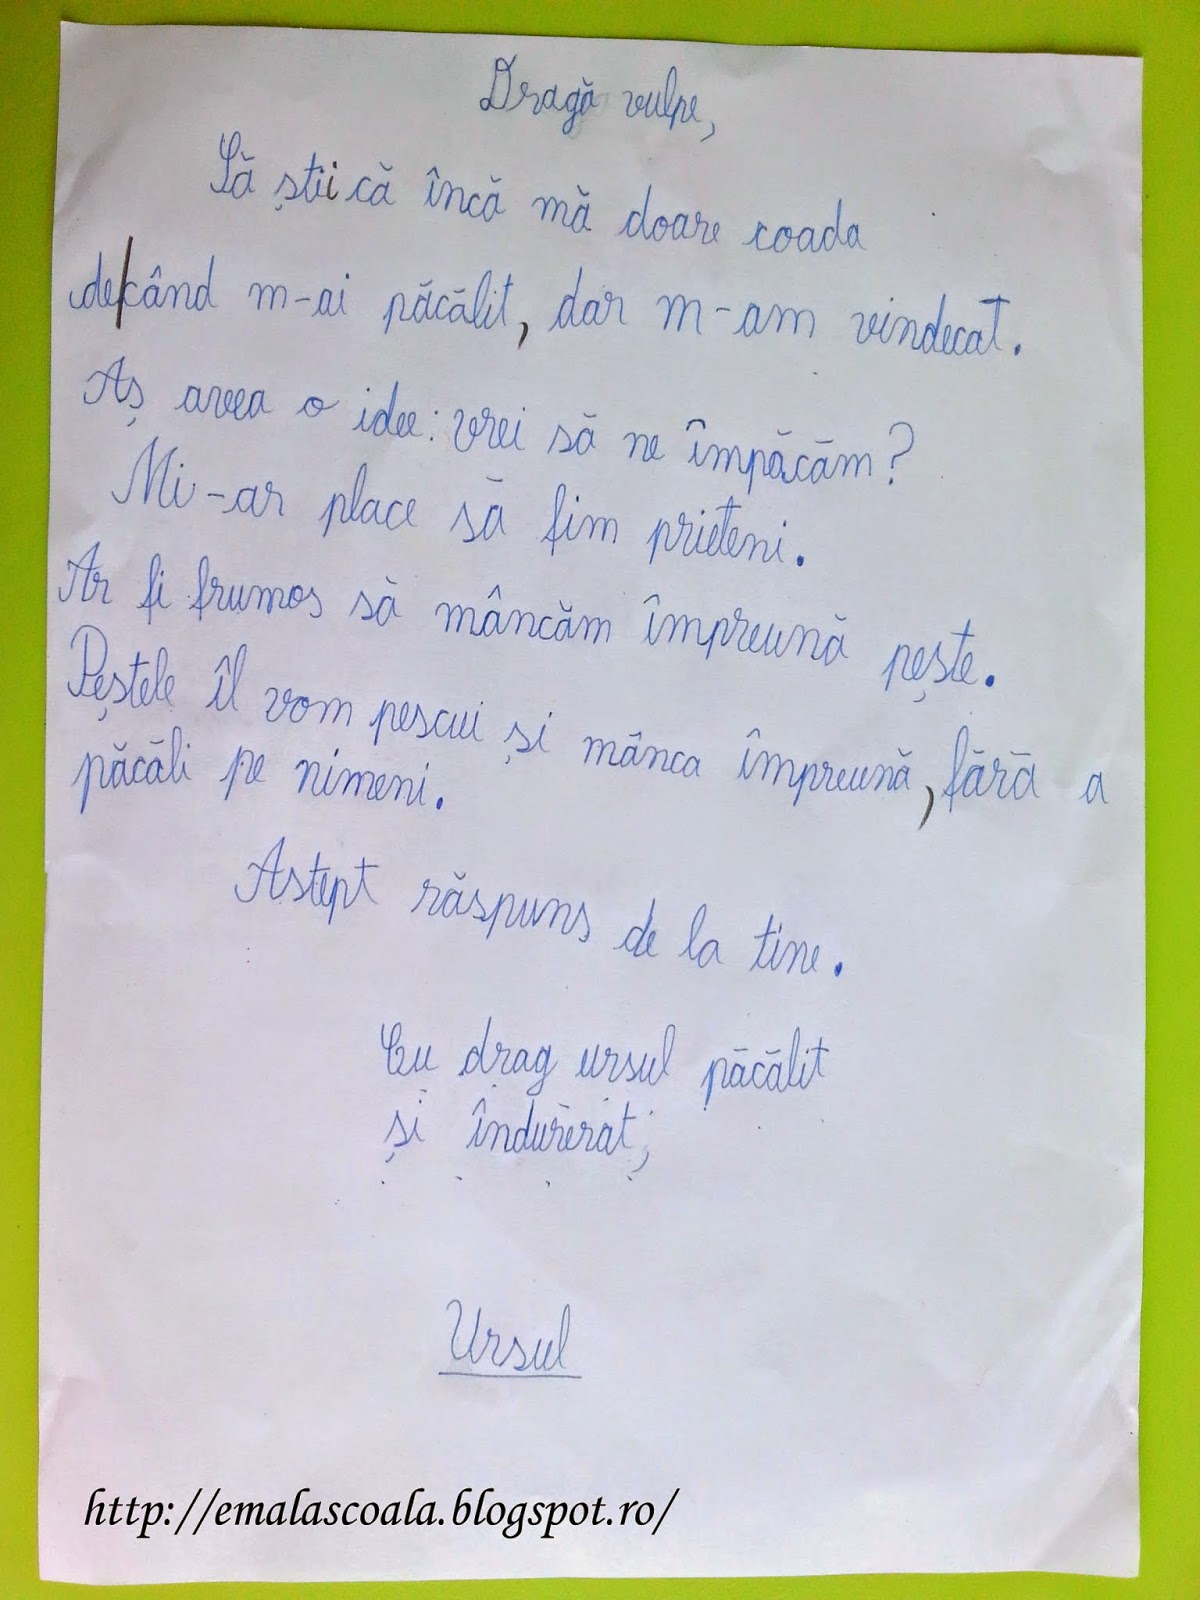 Dragă vulpe,
Să știi că încă mă doare coada
de când m-ai păcălit, dar m-am vindecat.
Aș avea o idee: vrei să ne împăcăm?
Mi-ar place să fim prieteni.
Ar fi frumos să mâncăm împreună pește.
Peștele îl vom pescui și mânca împreună, fără a
păcăli pe nimeni.
Astept răspuns de la tine.
Cu drag ursul păcălit
și îndurerat,
Ursul
http://emalascoala.blogspot.ro/